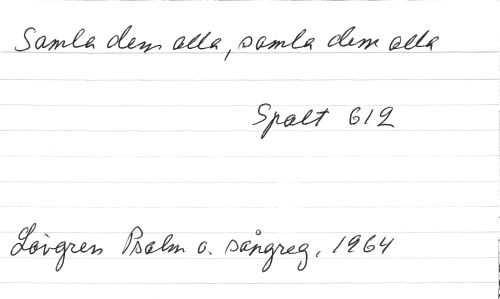 Samla dem alla, samla dem alla
Spalt 612
Lövgren Psalm o. sångreg. 1964